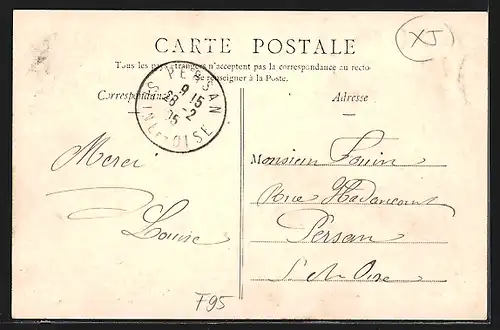 CARTE POSTALE
XJ
Tous les pays étrangers n'acceptent pas la correspondance au recto
Se renseigner à la Poste.
Correspondance
Adresse
PERSAN
9 15
28 -2
05
SEINE-ET-OISE
Merci
Louise
Monsieur Fouin
Rue Hadancourt
Persan
S. et Oise
F95